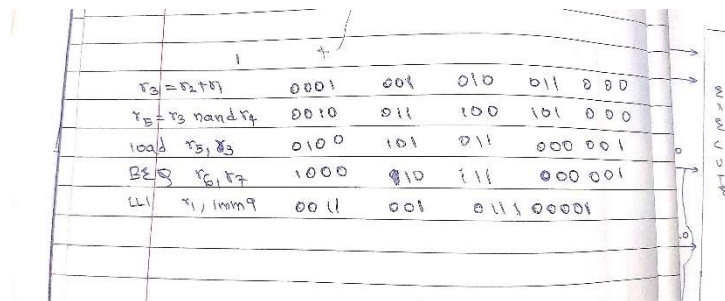 r3 = r2+r1 0001 001 010 011 000
r5 = r3 nand r4 0010 011 100 101 000
load r5, r3 0100 101 011 000 001
BEQ r6, r7 1000 110 111 000 001
LLI r1, imm9 0011 001 011100001
EXECUTE